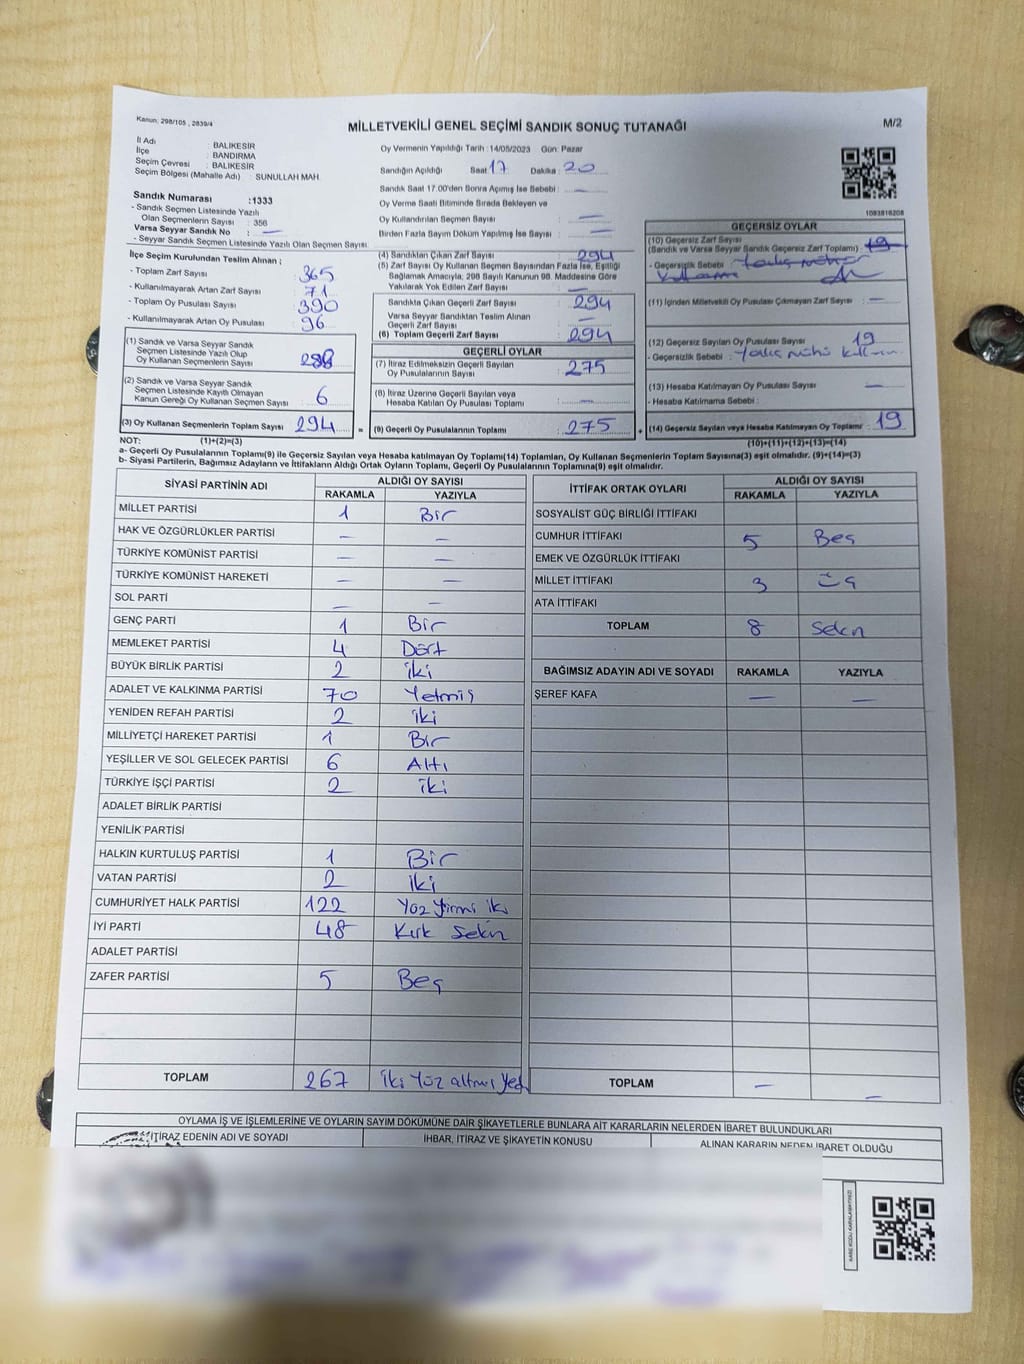 Kanun: 298/105 , 2839/4
MİLLETVEKİLİ GENEL SEÇİMİ SANDIK SONUÇ TUTANAĞI
M/2
İl Adı : BALIKESİR
İlçe : BANDIRMA
Seçim Çevresi : BALIKESİR
Seçim Bölgesi (Mahalle Adı) : SUNULLAH MAH.
Sandık Numarası :1333
- Sandık Seçmen Listesinde Yazılı
Olan Seçmenlerin Sayısı : 356
Varsa Seyyar Sandık No : —
- Seyyar Sandık Seçmen Listesinde Yazılı Olan Seçmen Sayısı:
Oy Vermenin Yapıldığı Tarih :14/05/2023 Gün: Pazar
Sandığın Açıldığı Saat 17 Dakika : 20
Sandık Saat 17.00'den Sonra Açımış İse Sebebi : —
Oy Verme Saati Bitiminde Sırada Bekleyen ve
Oy Kullandırılan Seçmen Sayısı —
Birden Fazla Sayım Döküm Yapılmış İse Sayısı : —
1083816208
İlçe Seçim Kurulundan Teslim Alınan ;
- Toplam Zarf Sayısı : 365
- Kullanılmayarak Artan Zarf Sayısı : 71
- Toplam Oy Pusulası Sayısı : 390
- Kullanılmayarak Artan Oy Pusulası : 96
(1) Sandık ve Varsa Seyyar Sandık
Seçmen Listesinde Yazılı Olup
Oy Kullanan Seçmenlerin Sayısı : 288
(2) Sandık ve Varsa Seyyar Sandık
Seçmen Listesinde Kayıtlı Olmayan
Kanun Gereği Oy Kullanan Seçmen Sayısı : 6
(3) Oy Kullanan Seçmenlerin Toplam Sayısı : 294
(4) Sandıktan Çıkan Zarf Sayısı : 294
(5) Zarf Sayısı Oy Kullanan Seçmen Sayısından Fazla İse, Eşitliği
Sağlamak Amacıyla, 298 Sayılı Kanunun 98. Maddesine Göre
Yakılarak Yok Edilen Zarf Sayısı : —
Sandıkta Çıkan Geçerli Zarf Sayısı : 294
Varsa Seyyar Sandıktan Teslim Alınan
Geçerli Zarf Sayısı : —
(6) Toplam Geçerli Zarf Sayısı : 294
GEÇERLİ OYLAR
(7) İtiraz Edilmeksizin Geçerli Sayılan
Oy Pusulalarının Sayısı : 275
(8) İtiraz Üzerine Geçerli Sayılan veya
Hesaba Katılan Oy Pusulası Toplamı : —
= (9) Geçerli Oy Pusulalarının Toplamı : 275 +
GEÇERSİZ OYLAR
(10) Geçersiz Zarf Sayısı
(Sandık ve Varsa Seyyar Sandık Geçersiz Zarf Toplamı) : 19
- Geçersizlik Sebebi :
(11) İçinden Milletvekili Oy Pusulası Çıkmayan Zarf Sayısı : —
(12) Geçersiz Sayılan Oy Pusulası Sayısı : 19
- Geçersizlik Sebebi :
(13) Hesaba Katılmayan Oy Pusulası Sayısı : —
- Hesaba Katılmama Sebebi :
(14) Geçersiz Sayılan veya Hesaba Katılmayan Oy Toplamı : 19
NOT: (1)+(2)=(3) (10)+(11)+(12)+(13)=(14)
a- Geçerli Oy Pusulalarının Toplamı(9) ile Geçersiz Sayılan veya Hesaba katılmayan Oy Toplamı(14) Toplamları, Oy Kullanan Seçmenlerin Toplam Sayısına(3) eşit olmalıdır. (9)+(14)=(3)
b- Siyasi Partilerin, Bağımsız Adayların ve İttifakların Aldığı Ortak Oyların Toplamı, Geçerli Oy Pusulalarının Toplamına(9) eşit olmalıdır.
SİYASİ PARTİNİN ADI ALDIĞI OY SAYISI
RAKAMLA YAZIYLA
MİLLET PARTİSİ 1 Bir
HAK VE ÖZGÜRLÜKLER PARTİSİ — —
TÜRKİYE KOMÜNİST PARTİSİ — —
TÜRKİYE KOMÜNİST HAREKETİ — —
SOL PARTİ — —
GENÇ PARTİ 1 Bir
MEMLEKET PARTİSİ 4 Dört
BÜYÜK BİRLİK PARTİSİ 2 iki
ADALET VE KALKINMA PARTİSİ 70 Yetmiş
YENİDEN REFAH PARTİSİ 2 iki
MİLLİYETÇİ HAREKET PARTİSİ 1 Bir
YEŞİLLER VE SOL GELECEK PARTİSİ 6 Altı
TÜRKİYE İŞÇİ PARTİSİ 2 iki
ADALET BİRLİK PARTİSİ
YENİLİK PARTİSİ
HALKIN KURTULUŞ PARTİSİ 1 Bir
VATAN PARTİSİ 2 iki
CUMHURİYET HALK PARTİSİ 122 Yüz yirmi iki
İYİ PARTİ 48 Kırk Sekiz
ADALET PARTİSİ
ZAFER PARTİSİ 5 Beş
TOPLAM 267 iki Yüz altmış Yedi
İTTİFAK ORTAK OYLARI ALDIĞI OY SAYISI
RAKAMLA YAZIYLA
SOSYALİST GÜÇ BİRLİĞİ İTTİFAKI
CUMHUR İTTİFAKI 5 Beş
EMEK VE ÖZGÜRLÜK İTTİFAKI
MİLLET İTTİFAKI 3 üç
ATA İTTİFAKI
TOPLAM 8 Sekiz
BAĞIMSIZ ADAYIN ADI VE SOYADI RAKAMLA YAZIYLA
ŞEREF KAFA — —
TOPLAM — —
OYLAMA İŞ VE İŞLEMLERİNE VE OYLARIN SAYIM DÖKÜMÜNE DAİR ŞİKAYETLERLE BUNLARA AİT KARARLARIN NELERDEN İBARET BULUNDUKLARI
İTİRAZ EDENİN ADI VE SOYADI İHBAR, İTİRAZ VE ŞİKAYETİN KONUSU ALINAN KARARIN NEDEN İBARET OLDUĞU